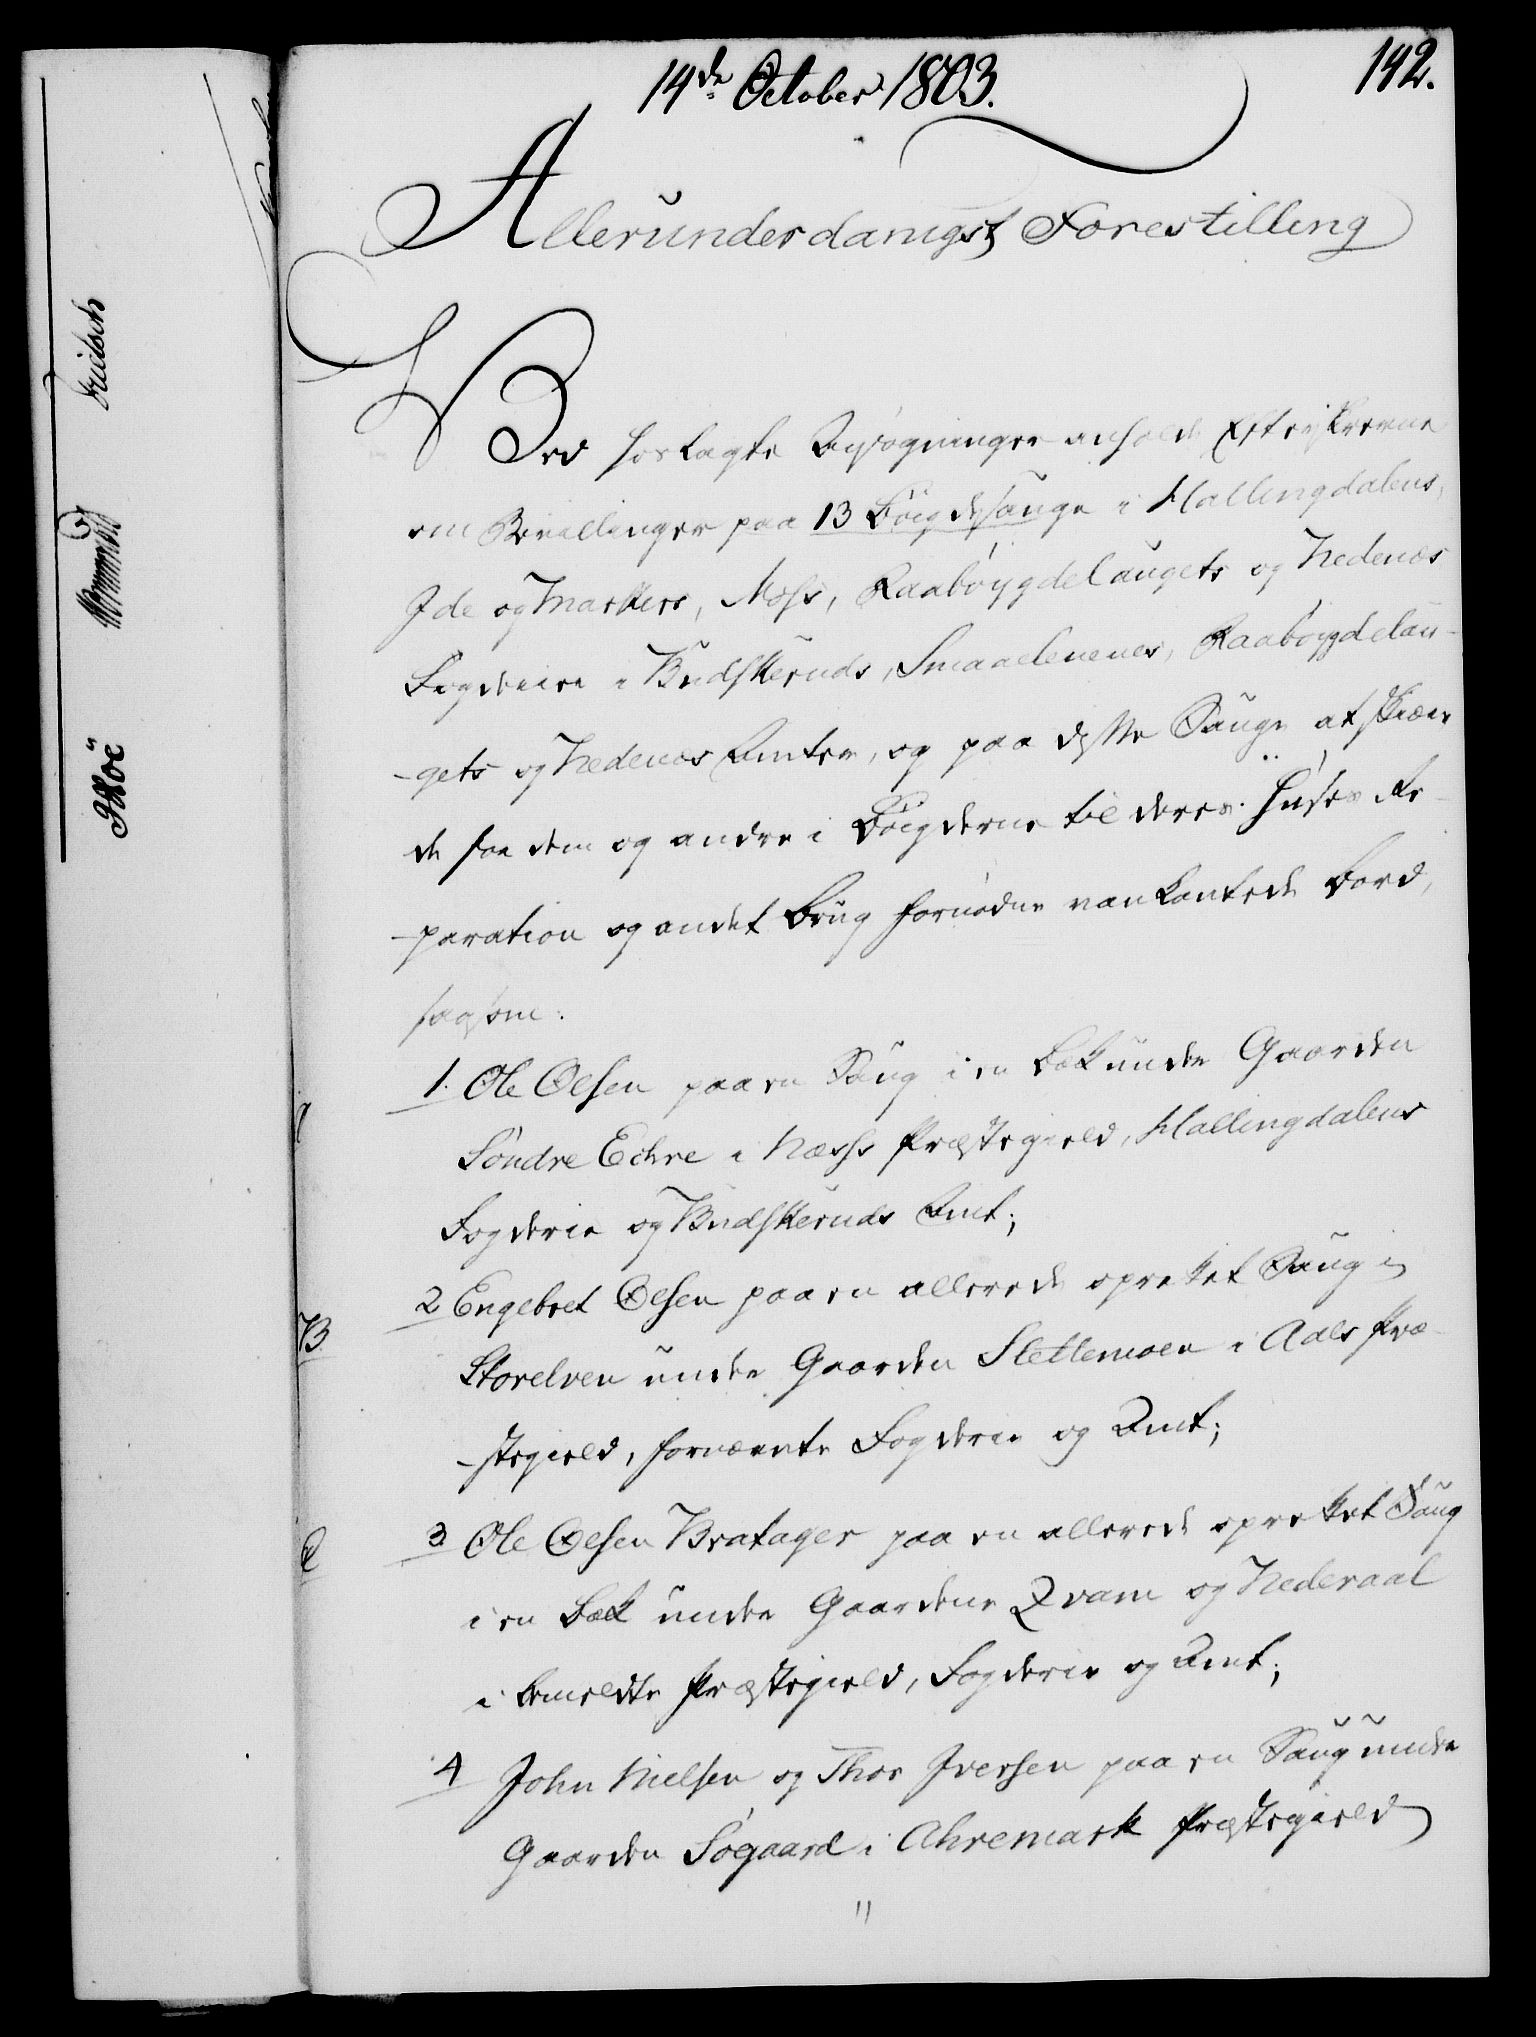 14de October 1803.
142.
Allerunderdanigst Forestilling
Ved hoslagte Ansøgninger anholde Efterskrevne
om Bevillinger paa 13 Bøigdesauge i Hallingdalens,
Ide og Markers, Moss, Raabøygdelaugets og Nedenæs
Fogderier i Budskeruds, Smaalenenes, Raabøigdelau-
-gets og Nedenæs Amter, og paa disse Sauge at skiære
de for dem og andre i Bøigderne til deres Huses Re-
-paration og andet Brug fornødne vankantede Bord,
saasom:
1. Ole Olsen paa en Saug i en Bæk under Gaarden
Søndre Eckre i Næsss Præstegield, Hallingdalens
Fogderie og Budskeruds Amt;
2 Engebret Olsen paa en allerede oprettet Saug i
Storelven under Gaarden Slettemoen i Aals Præ-
-stegield, fornævnte Fogderie og Amt;
3 Ole Olsen Bratager paa en allerede oprettet Saug
i en Bæk under Gaardene Qvam og Nederaal
i bemeldte Præstegield, Fogderie og Amt;
4 John Nielsen og Thor Iversen paa en Saug under
Gaarden Søgaard i Ahremark Præstegield
B